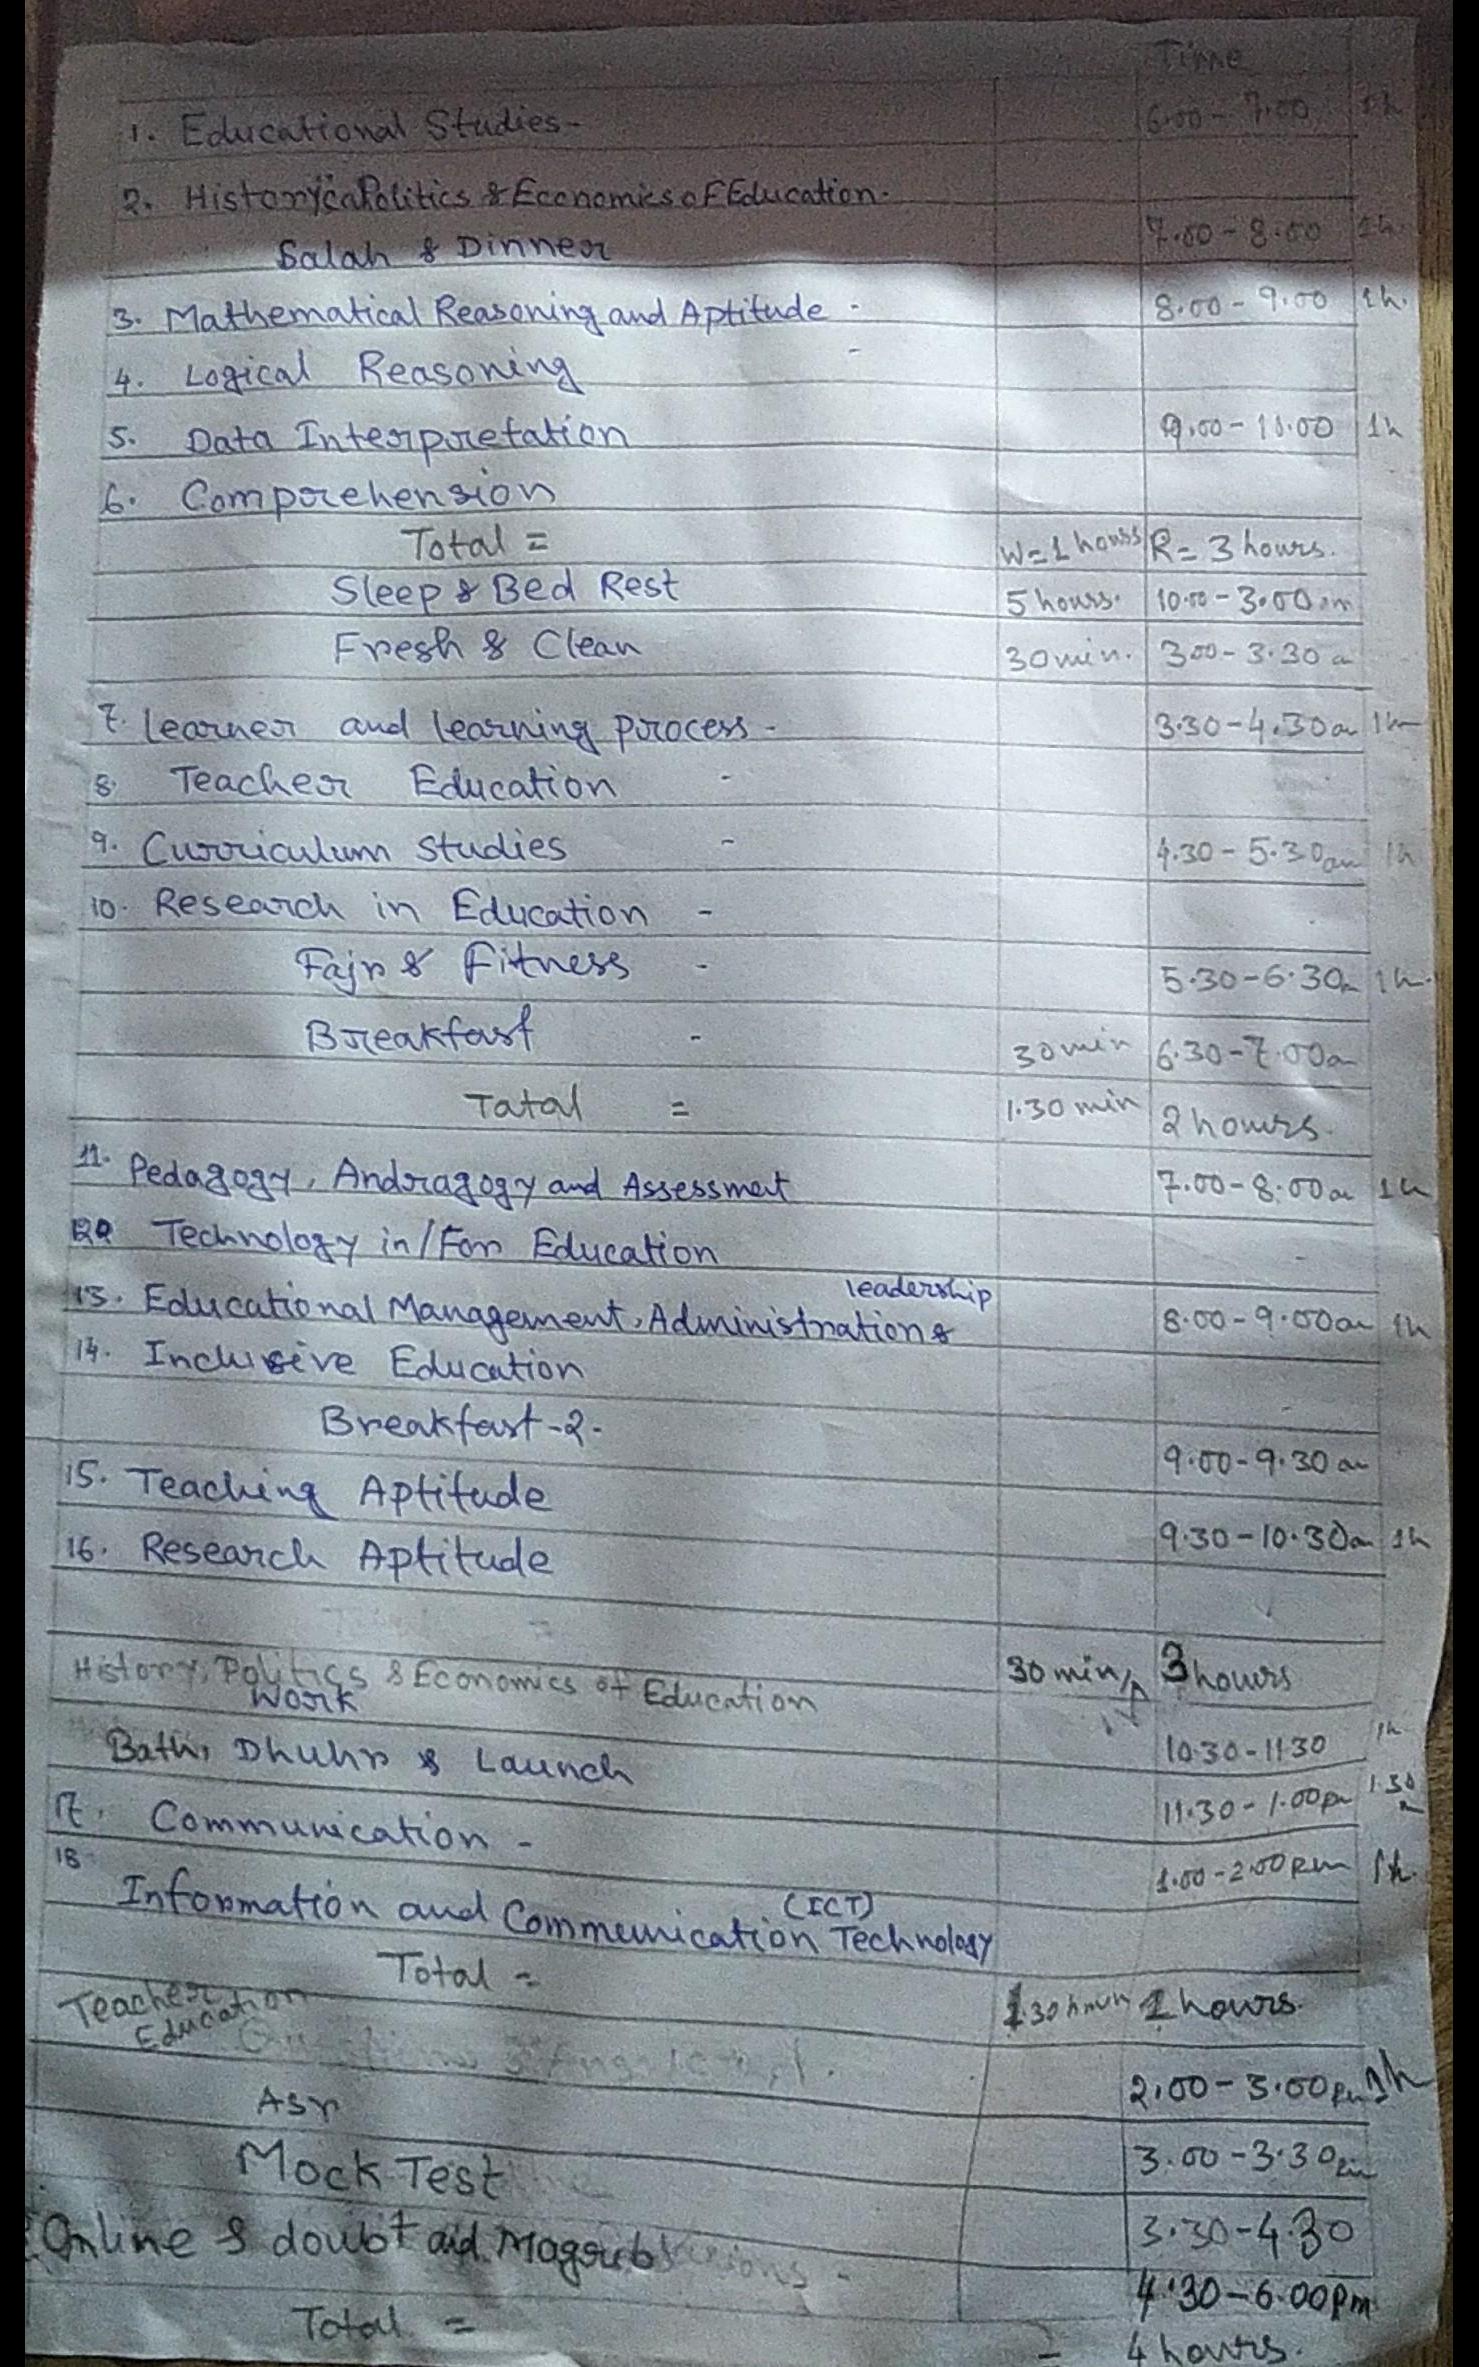 Time
1. Educational Studies - 6.00 - 7.00 1h
2. History Politics & Economics of Education.
Salah & Dinner 7.00 - 8.00 1h.
3. Mathematical Reasoning and Aptitude - 8.00 - 9.00 1h.
4. Logical Reasoning -
5. Data Interpretation 9.00 - 10.00 1h
6. Comprehension
Total = W=1 hours R= 3 hours.
Sleep & Bed Rest 5 hours. 10.00 - 3.00 am
Fresh & Clean 30 min. 3.00 - 3.30 a
7. learner and learning process - 3.30 - 4.30 am 1h
8. Teacher Education -
9. Curriculum studies - 4.30 - 5.30am 1h
10. Research in Education -
Fajr & Fitness - 5.30 - 6.30 1h.
Breakfast - 30 min 6.30 - 7.00a
Tatal = 1.30 min 2 hours.
11. Pedagogy, Andragogy and Assessment 7.00 - 8.00 am 1h
Technology in/For Education
leadership
13. Educational Management, Administration & 8.00 - 9.00am 1h
14. Inclusive Education
Breakfast -2- 9.00 - 9.30 am
15. Teaching Aptitude
16. Research Aptitude 9.30 - 10.30am 1h
History, Politics & Economics of Education 30 min 3 hours
Work 10.30 - 11.30 1h
Bath, Dhuhr & Launch 11.30 - 1.00pm 1.30
17. Communication - 1.00 - 2.00 pm 1h.
18 Information and Communication Technology (ICT)
Total = 1.30 1 hours.
Teacher Education 2.00 - 3.00 pm 1h
Asr 3.00 - 3.30pm
Mock Test 3.30 - 4.30
Online & doubt and Magrub 4.30 - 6.00 pm
Total = = 4 hours.